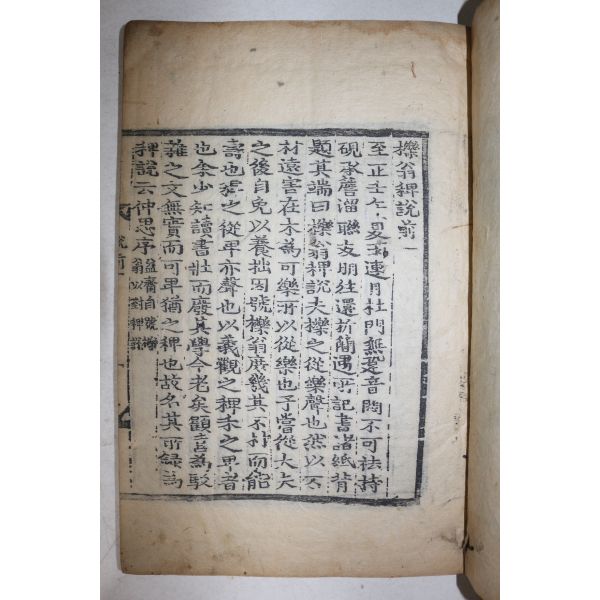 櫟翁稗說前一
至正壬午夏雨連月杜門無跫音悶不可袪持
硯承簷溜聯友朋往還折簡遇所記書諸紙背
題其端曰櫟翁稗說夫櫟之從樂聲也然以不
材遠害在木為可樂所以從樂也予嘗從大夫
之後自免以養拙因號櫟翁庶幾其不材而能
壽也稗之從卑亦聲也以義觀之稗禾之卑者
也余少知讀書壯而廢其學今老矣顧喜為駁
雜之文無實而可卑猶之稗也故名其所錄為
稗說云仲思序
益齋自號櫟
翁以對稗說
說前